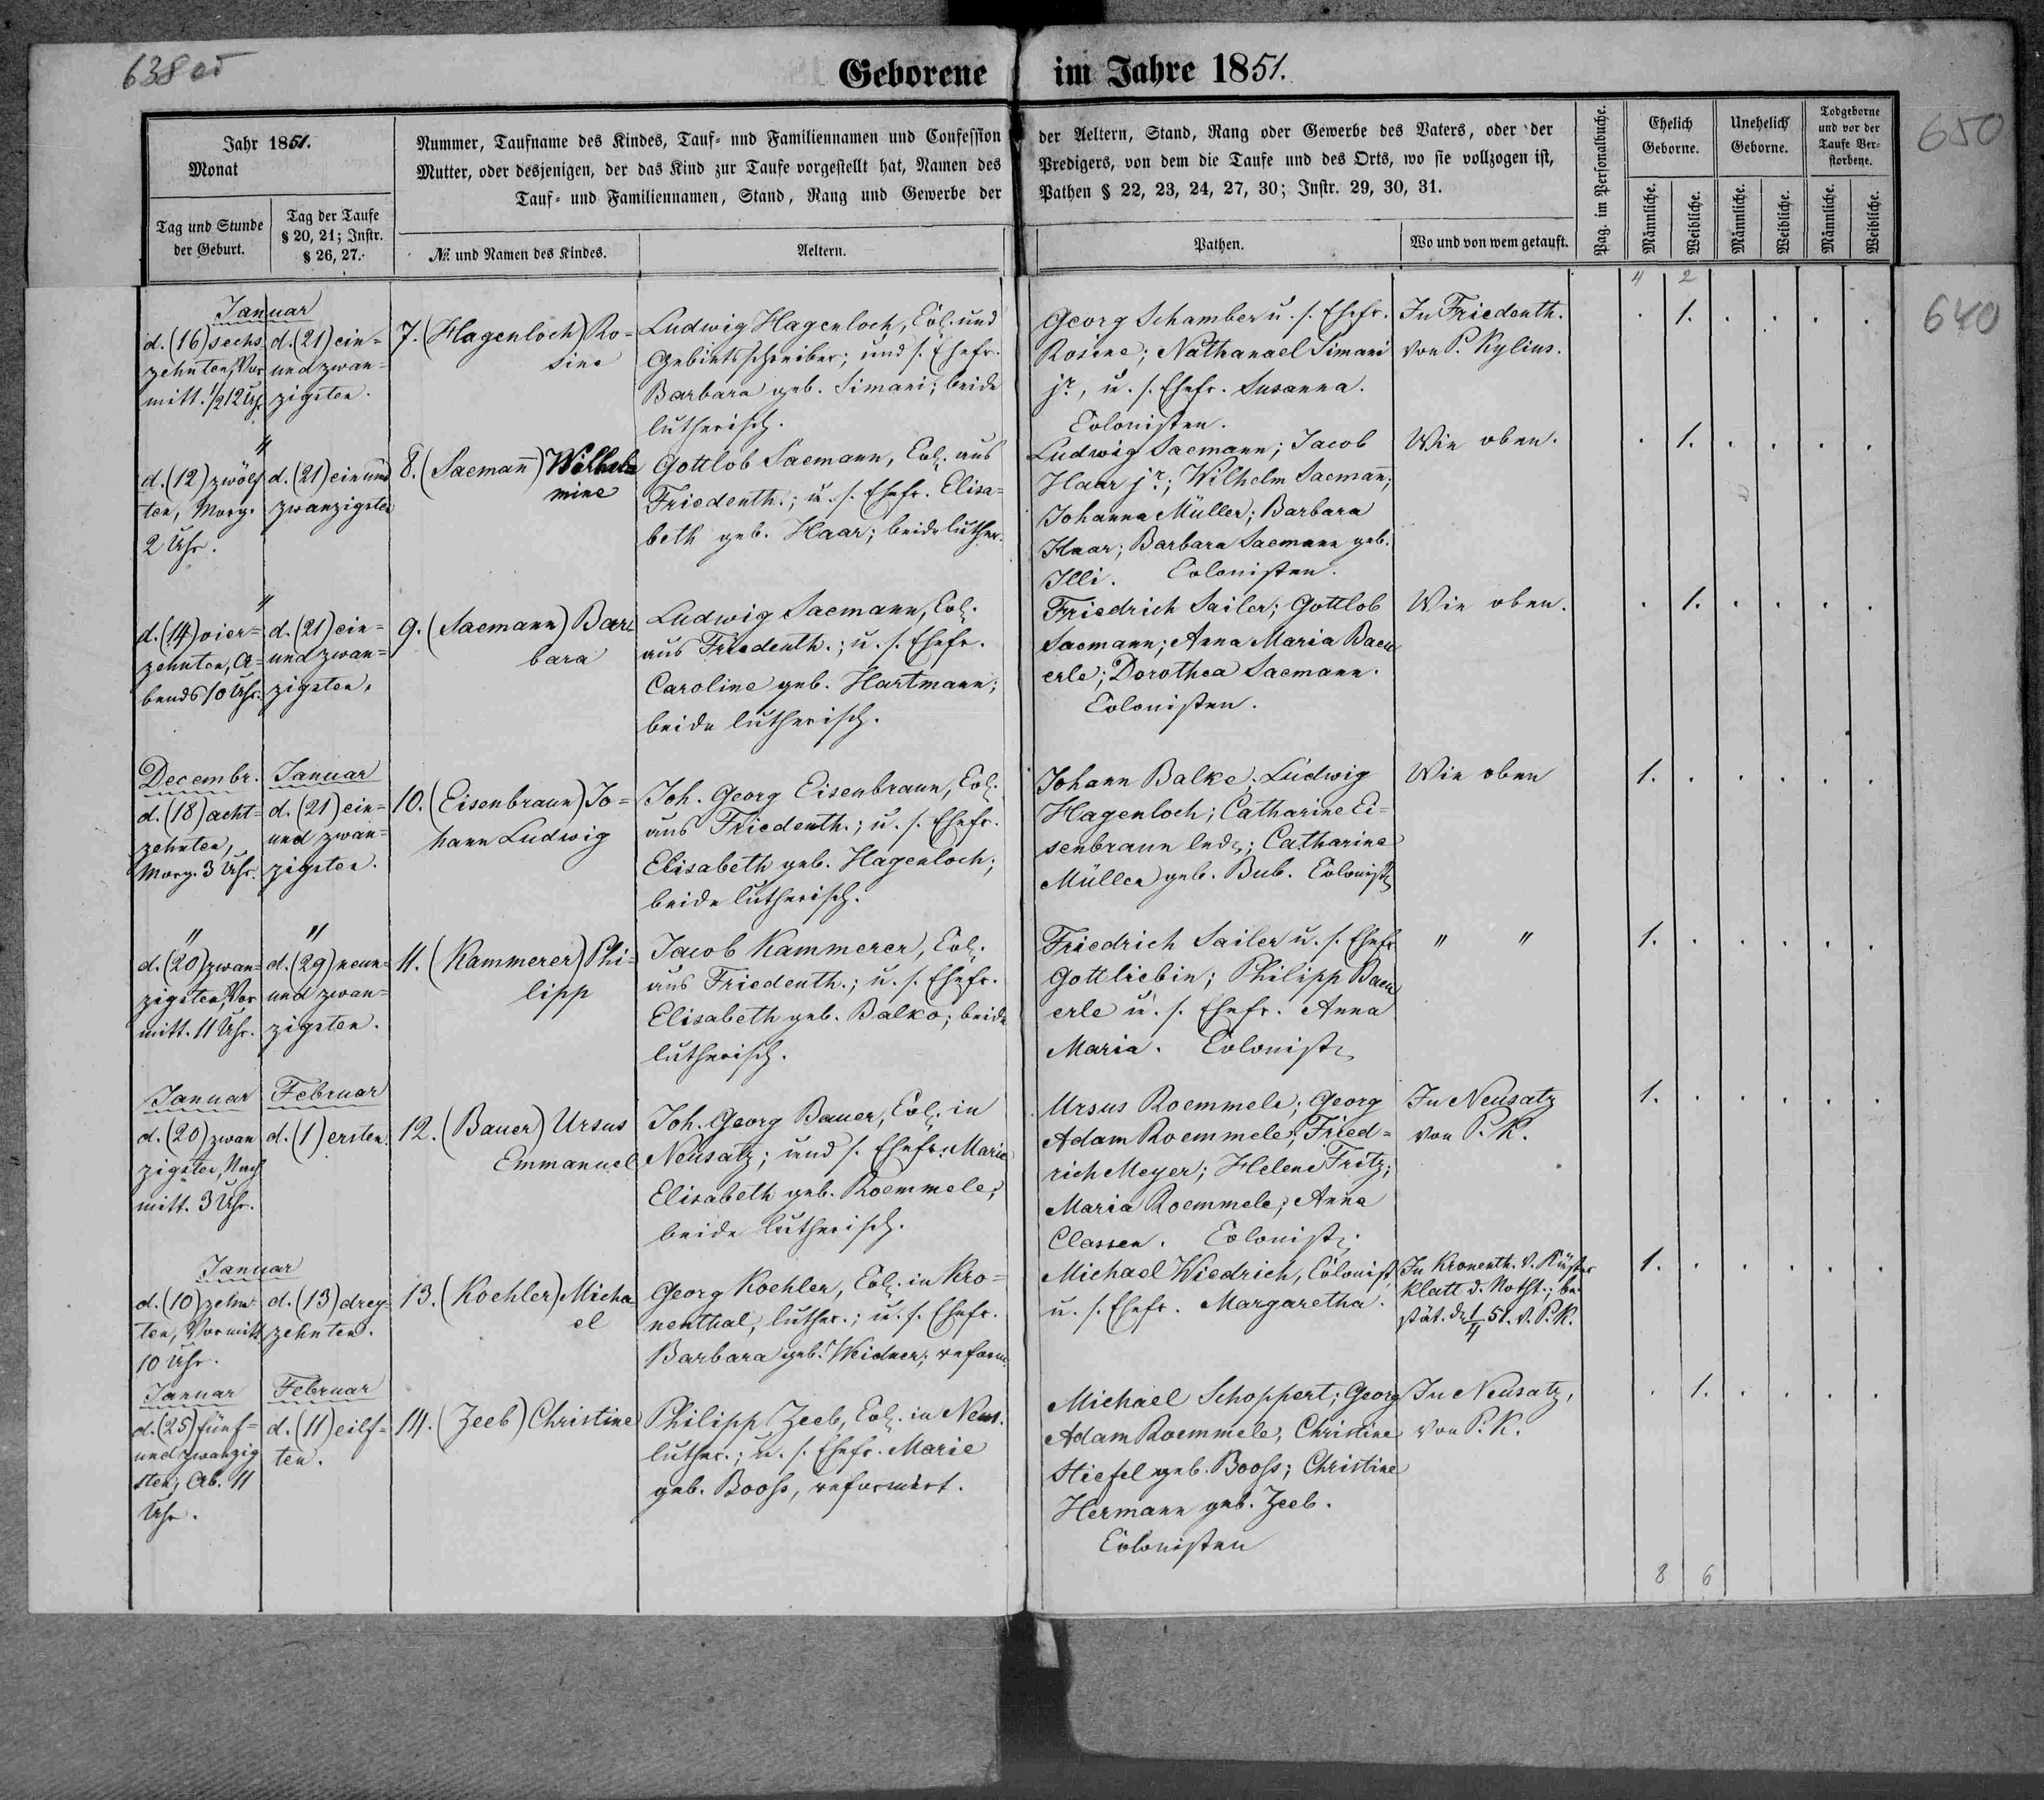 638 os
Geborene im Jahre 1851.
650
640
Jahr 1851.
Monat
Tag und Stunde
der Geburt.
Tag der Taufe
§ 20, 21; Instr.
§ 26, 27.
Nummer, Taufname des Kindes, Tauf- und Familiennamen und Confession der Aeltern, Stand, Rang oder Gewerbe des Vaters, oder der
Mutter, oder desjenigen, der das Kind zur Taufe vorgestellt hat, Namen des Predigers, von dem die Taufe und des Orts, wo sie vollzogen ist,
Tauf- und Familiennamen, Stand, Rang und Gewerbe der Pathen § 22, 23, 24, 27, 30; Instr. 29, 30, 31.
№ und Namen des Kindes.
Aeltern.
Pathen.
Wo und von wem getauft.
Pag. im Personalbuche.
Ehelich
Geborne.
Unehelich
Geborne.
Todgeborne
und vor der
Taufe Ver-
storbene.
Männliche.
Weibliche.
Männliche.
Weibliche.
Männliche.
Weibliche.
4 2
Januar
d. (16) sechs
zehnten, Vor
mitt. 1/2 12 Uhr
d. (21) ein=
und zwan=
zigsten.
7. (Hagenloch) Ro=
sine
Ludwig Hagenloch, Col. und
Gebietsschreiber; und s. Ehefr.
Barbara geb. Simani; beide
lutherisch.
Georg Schamber u. s. Ehefr.
Rosine; Nathanael Simani
jr., u. s. Ehefr. Susanna.
Colonisten.
In Friedenth.
von P. Kylius.
. 1. . . . .
"
d. (12) zwölf
ten, Morg.
2 Uhr.
d. (21) ein und
zwanzigsten
8. (Saemañ) Wilhel=
mine
Gottlob Saemann, Col. aus
Friedenth.; u. s. Ehefr. Elisa=
beth geb. Haar; beide luther.
Ludwig Saemann; Jacob
Haar jr.; Wilhelm Saemañ;
Johanna Müller; Barbara
Haar; Barbara Saemann geb.
Illi. Colonisten.
Wie oben.
. 1. . . . .
"
d. (14) vier=
zehnten, A=
bends 10 Uhr.
d. (21) ein=
und zwan=
zigsten.
9. (Saemann) Bar=
bara
Ludwig Saemann, Col.
aus Friedenth.; u. s. Ehefr.
Caroline geb. Hartmann;
beide lutherisch.
Friedrich Sailer; Gottlob
Saemann; Anna Maria Baeu
erle; Dorothea Saemann.
Colonisten.
Wie oben.
. 1. . . . .
Decembr.
d. (18) acht=
zehnten,
Morg. 3 Uhr.
Januar
d. (21) ein=
und zwan=
zigsten.
10. (Eisenbraun) Jo=
hann Ludwig
Joh. Georg Eisenbraun, Col.
aus Friedenth.; u. s. Ehefr.
Elisabeth geb. Hagenloch;
beide lutherisch.
Johann Balke; Ludwig
Hagenloch; Catharine Ei=
senbraun led.; Catharine
Müller geb. Bub. Colonist.
Wie oben
1. . . . . .
"
d. (20) zwan=
zigsten, Vor
mitt. 11 Uhr.
"
d. (29) neun=
und zwan=
zigsten.
11. (Kammerer) Phi=
lipp
Jacob Kammerer, Col.
aus Friedenth.; u. s. Ehefr.
Elisabeth geb. Balko; beide
lutherisch.
Friedrich Sailer u. s. Ehefr.
Gottliebin; Philipp Baeu
erle u. s. Ehefr. Anna
Maria. Colonist.
" "
1. . . . . .
Januar
d. (20) zwan
zigsten, Nach
mitt. 3 Uhr.
Februar
d. (1) ersten.
12. (Bauer) Ursus
Emmanuel
Joh. Georg Bauer, Col. in
Neusatz; und s. Ehefr. Marie
Elisabeth geb. Roemmele;
beide lutherisch.
Ursus Roemmele; Georg
Adam Roemmele; Fried=
rich Meyer; Helene Fritz;
Maria Roemmele; Anna
Classen. Colonist.
In Neusatz
von P. K.
1. . . . . .
Januar
d. (10) zehn
ten, Vormitt
10 Uhr.
d. (13) drey=
zehnten.
13. (Koehler) Micha
el
Georg Koehler, Col. in Kro=
nenthal, luther.; u. s. Ehefr.
Barbara geb. Weidner; reform.
Michael Wiedrich, Colonist
u. s. Ehefr. Margaretha.
In Kronenth. v. Küster
Klatt d. Notht.; be=
stät. d. 1/4 51. v. P. K.
1. . . . . .
Januar
d. (25) fünf=
und zwanzig
sten; Ab. 11
Uhr.
Februar
d. (11) eilf=
ten.
14. (Zeeb) Christine
Philipp Zeeb, Col. in Neus.
luther.; u. s. Ehefr. Marie
geb. Booss, reformirt.
Michael Schoppert; Georg
Adam Roemmele, Christine
Stiefel geb. Booss; Christine
Hermann geb. Zeeb.
Colonisten
In Neusatz,
von P. K.
. 1. . . . .
8 6